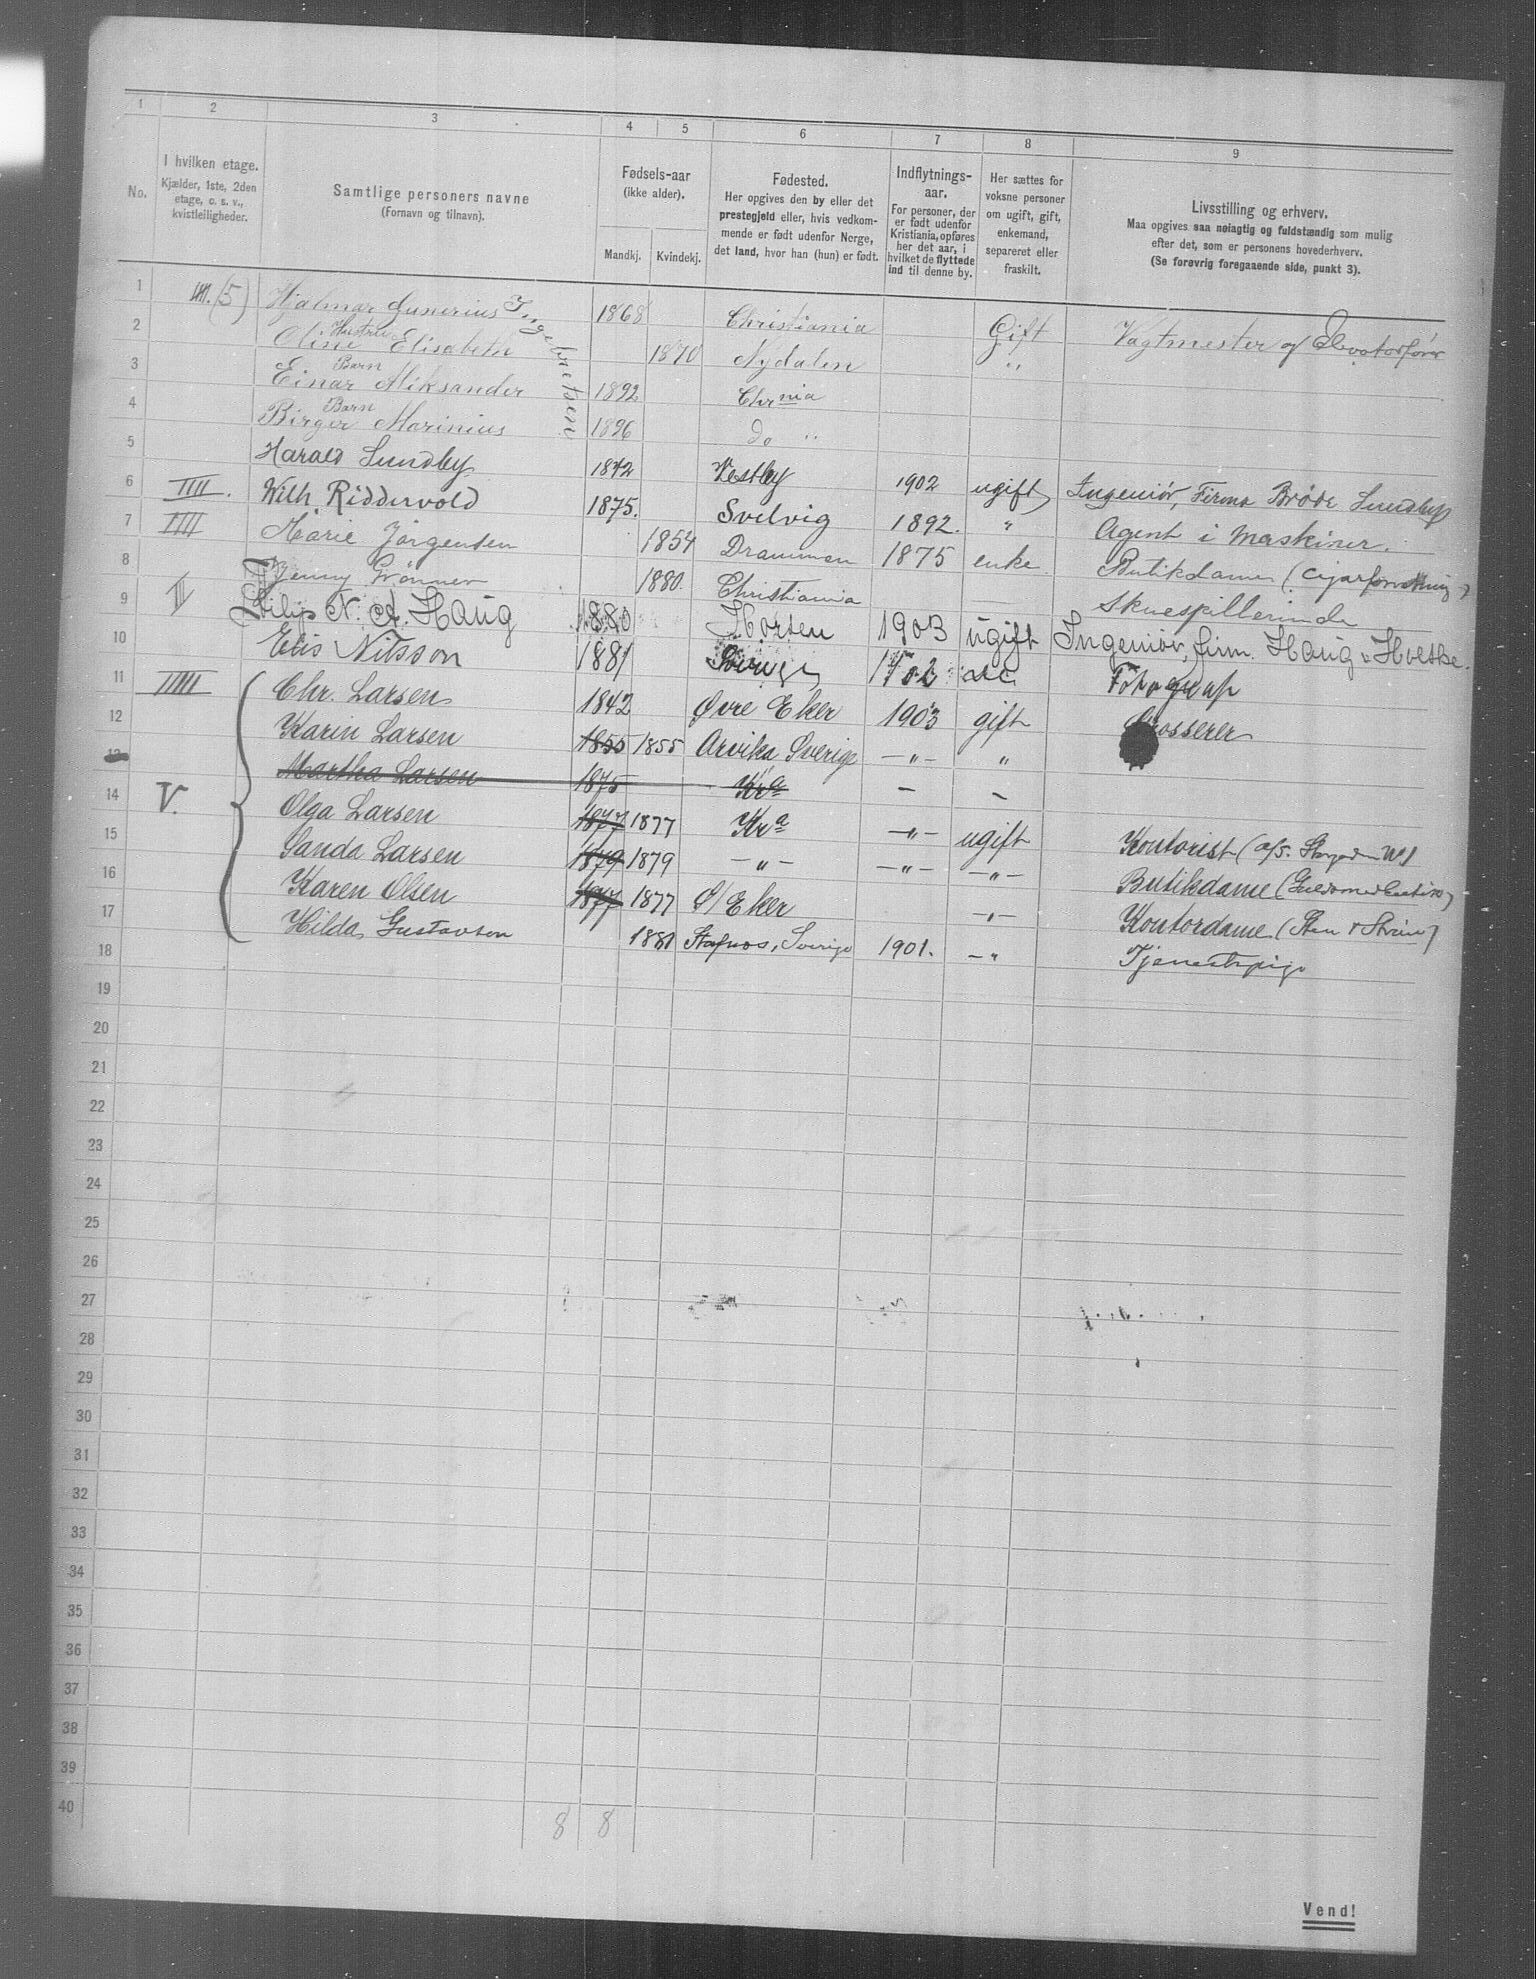 1 2 3 4 5 6 7 8 9
No.
I hvilken etage.
Kjælder, 1ste, 2den
etage, o. s. v.,
kvistleiligheder.
Samtlige personers navne
(Fornavn og tilnavn).
Fødsels-aar
(ikke alder).
Mandkj. Kvindekj.
Fødested.
Her opgives den by eller det
prestegjeld eller, hvis vedkom-
mende er født udenfor Norge,
det land, hvor han (hun) er født.
Indflytnings-
aar.
For personer, der
er født udenfor
Kristiania, opføres
her det aar, i
hvilket de flyttede
ind til denne by.
Her sættes for
voksne personer
om ugift, gift,
enkemand,
separeret eller
fraskilt.
Livsstilling og erhverv.
Maa opgives saa nøiagtig og fuldstændig som mulig
efter det, som er personens hovederhverv.
(Se forøvrig foregaaende side, punkt 3).
1 III. (5) Hjalmar Gunerius Ingebretsen 1868 Christiania Gift Vagtmester og Elevatorfører
2 Hustru Oline Elisabeth 1870 Nydalen "
3 Barn Einar Aliksander 1892 Chr nia
4 Barn Birger Marinius 1896 do "
5 Harald Lundby 1872 Vestby 1902 ugift Ingeniør, Firma Brødr. Lundby
6 IIII. Wilh. Riddervold 1875. Svelvig 1892. " Agent i maskiner.
7 IIII Marie Jørgensen 1854 Drammen 1875 enke Butikdame (cigarforretning)
8 Jenny Grønner 1880. Christiania Skuespillerinde
9 II Filip N. A. Haug 1880 Horten 1903 ugift Ingeniør, firm. Haug & Holtke.
10 Elis Nilsson 1881 Sverige 1902 Fotograf
11 IIIII Chr. Larsen 1842 Øvre Eker 1903 gift Grosserer
12 Karin Larsen 1855 1855 Arvika Sverige — " — "
13 Martha Larsen 1875 Kra — —
14 V. Olga Larsen 1877 1877 Kra — " — ugift Kontorist (a/s.
15 Sanda Larsen 1879 1879 — " — — " — — " — Butikdame
16 Karen Olsen 1877 1877 Ø/Eker — " — Kontordame (Sten & Strøm)
17 Hilda Gustavson 1881 Sverige 1901. — " Tjenestepige
18
19
20
21
22
23
24
25
26
27
28
29
30
31
32
33
34
35
36
37
38
39
40
8 8
Vend!